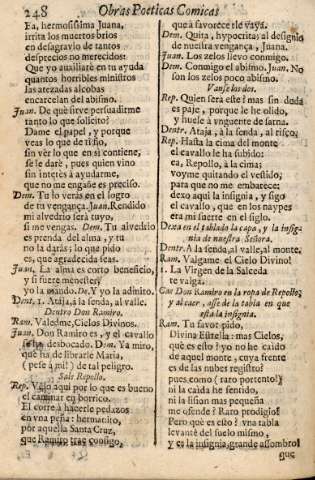 248 Obras Poeticas Comicas
Ea, hermosissima Juana,
irrita los muertos brios
en desagravio de tantos
desprecios no merecidos:
Que yo auxiliarè en tu ayuda
quantos horribles ministros
las atezadas alcobas
encarcelan del abismo.
Juan. De què sirve persuadirme
tanto lo que solicito?
Dame el papel, y porque
veas lo que de ti fio,
sin vèr lo que en si contiene,
se le darè, pues quien vino
sin interès à ayudarme,
que no me engañe es preciso.
Dem. Tu lo veràs en el logro
de tu vengança. Juan. Rendido
mi alvedrio serà tuyo,
si me vengas. Dem. Tu alvedrio
es prenda del alma, y tu
no la daràs; lo que pido
es, que agradecida seas.
Juan. La alma es corto beneficio,
y si fuere menester
yo la mando. De. Y yo la admito.
Dent. 1. Atajà, à la senda, al valle.
Dentro Don Ramiro.
Ram. Valedme, Cielos Divinos.
Juan. Don Ramiro es, y el cavallo
se ha desbocado. Dem. Yà miro,
que ha de librarle Maria,
(pese à mi!) de tal peligro.
Sale Repollo.
Rep. Vajo aqui por lo que es bueno
el caminar en borrico.
El corre à hacerle pedazos
en vna peña: hermanito,
por aquella Santa Cruz,
que Ramiro trae consigo,
que à favorecerle vaya.
Dem. Quita, hypocrita; al designio
de nuestra vengança, Juana.
Juan. Los zelos llevo conmigo.
Dem. Conmigo el abismo. Juan. No
son los zelos poco abismo.
Vanse los dos.
Rep. Quien serà este? mas sin duda
es paje, porque le he olido,
y huele à vnguente de sarna.
Dentr. Ataja, à la senda, al risco.
Rep. Hasta la cima del monte
el cavallo le ha subido:
ea, Repollo, à la cima:
voyme quitando el vestido,
para que no me embarece:
dexo aqui la insignia, y sigo
el cavallo, que en los naypes
era mi suerte en el siglo.
Dexa en el tablado la capa, y la insig-
nia de nuestra Señora.
Dentr. A la senda, al valle, al monte.
Ram. Valgame el Cielo Divino!
1. La Virgen de la Salceda
te valga.
Cae Don Ramiro en la ropa de Repollo,
y al caer, ase de la tabla en que
està la insignia.
Ram. Tu favor pido,
Divina Estrella: mas Cielos,
què es esto? yo no he caido
de aquel monte, cuya frente
es de las nubes registro?
pues como (raro portento!)
ni la caida he sentido,
ni la lision mas pequeña
me ofende? Raro prodigio!
Pero què es esto? vna tabla
levantè del suelo mismo,
y es la insignia, grande assombro!
que